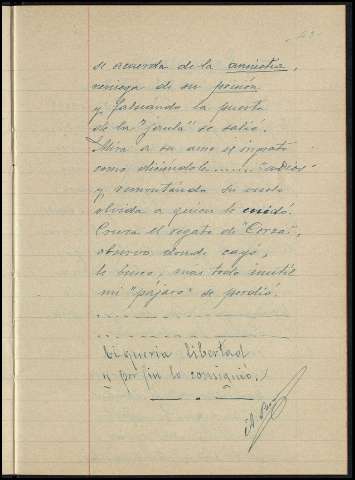 se acuerda de la amnistia,
reniega de su prisión
y falseando la puerta
de la "jaula" se salió.
Mira a su amo el ingrato
como diciéndole....... "adios"
y remontando su vuelo
olvida a quien le cuidó.
Cruza el regato de "Corza",
observo donde cayó,
le busco, mas todo inutil
mi "pájaro" se perdió.
El queria libertad
y por fin lo consiguió.